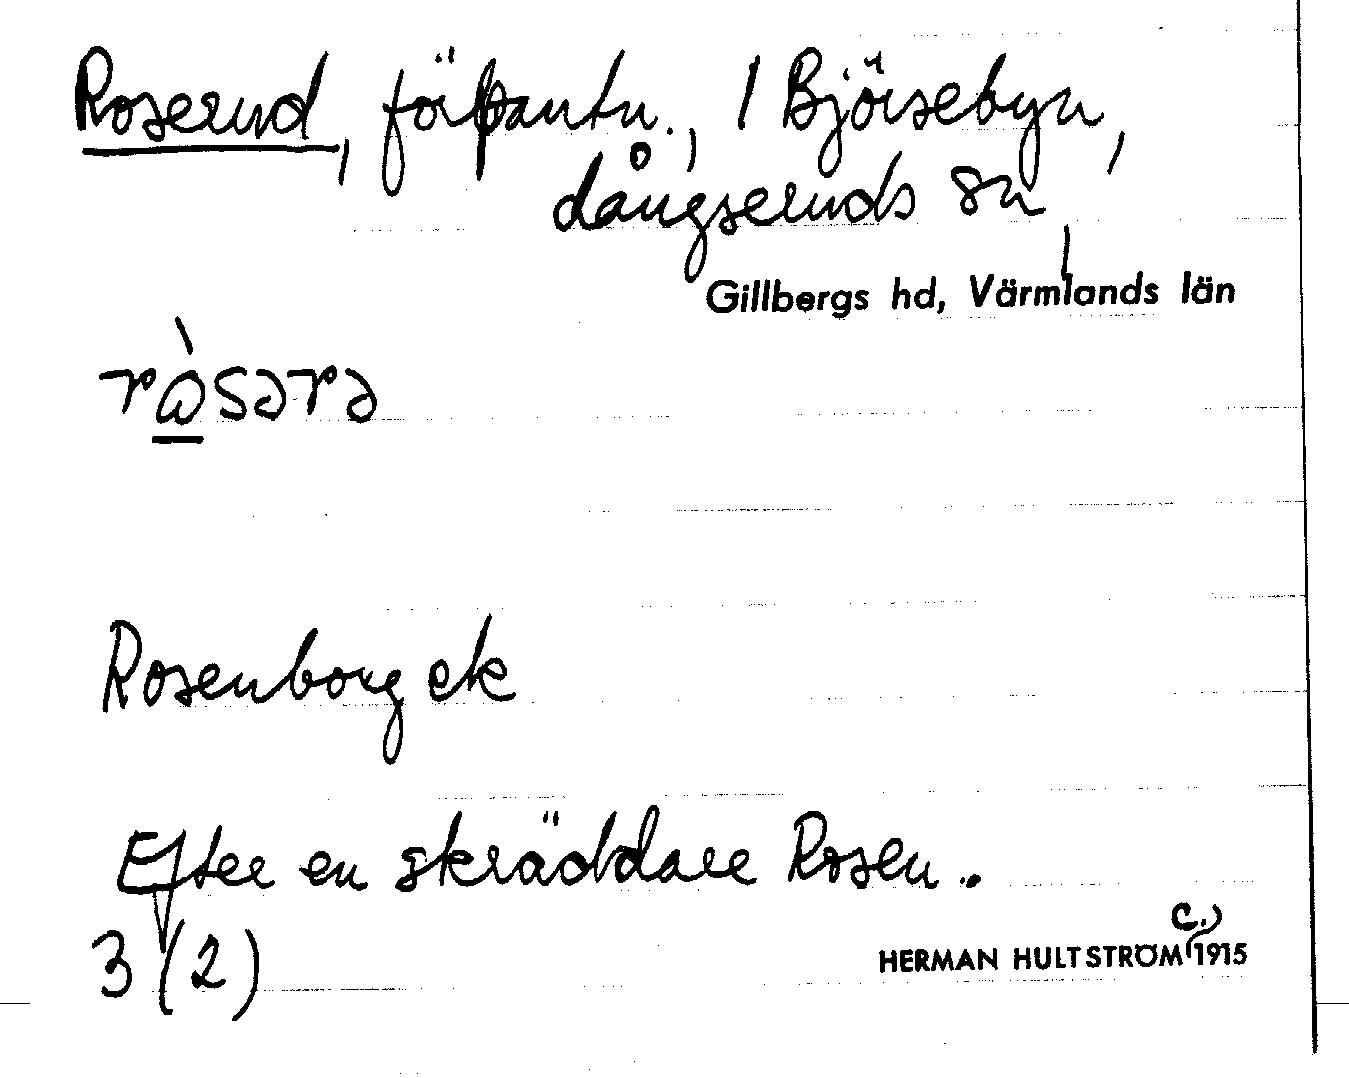 Roserud, förpantn., 1 Björsebyn,
Långseruds sn,
Gillbergs hd, Värmlands län
rò̱sərə
Rosenborg ek
Efter en skräddare Rosen.
3 (2)
HERMAN HULTSTRÖM c. 1915